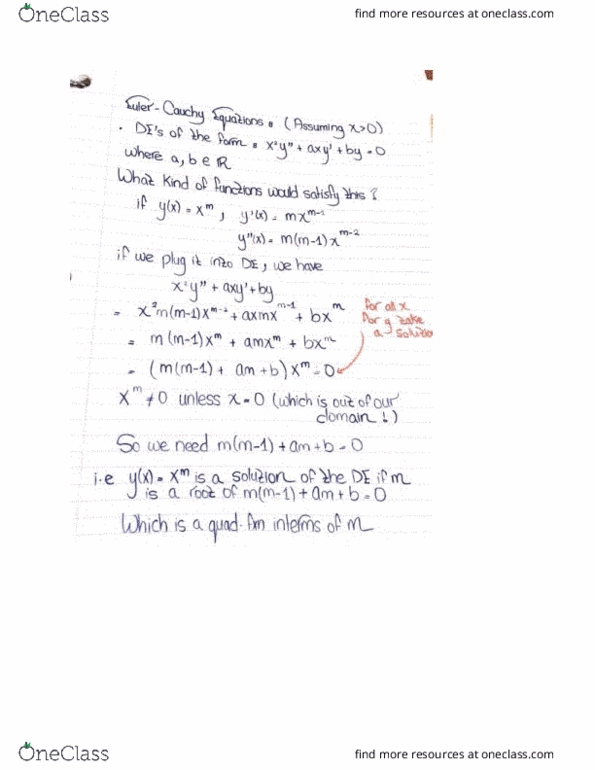 OneClass
find more resources at oneclass.com
Euler-Cauchy Equations: (Assuming x>0)
· DE's of the form: x²y" + axy' + by = 0
where a, b ∈ ℝ
What kind of functions would satisfy this?
if y(x) = x^m, y'(x) = mx^{m-1}
y"(x) = m(m-1)x^{m-2}
if we plug it into DE, we have
x²y" + axy' + by
= x²m(m-1)x^{m-2} + axmx^{m-1} + bx^m
for all x
= m(m-1)x^m + amx^m + bx^m
for y
a solution
= (m(m-1) + am + b)x^m = 0
x^m ≠ 0 unless x = 0 (which is out of our
domain!)
So we need m(m-1) + am + b = 0
i.e y(x) = x^m is a solution of the DE if m
is a root of m(m-1) + am + b = 0
Which is a quad. fm interms of m
OneClass
find more resources at oneclass.com